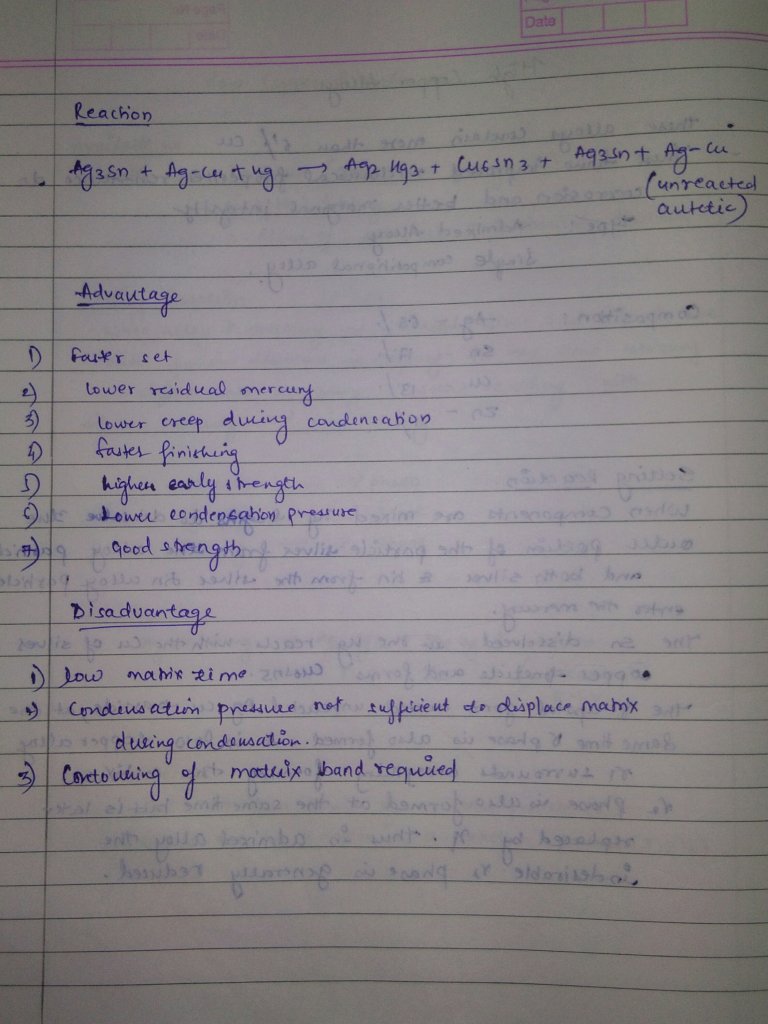 Date
Reaction
Ag3Sn + Ag-Cu + Hg → Ag2 Hg3 + Cu6Sn3 + Ag3Sn + Ag-Cu
(unreacted
autetic)
Advantage
1) Faster set
2) lower residual mercury
3) lower creep during condensation
4) faster finishing
5) higher early strength
6) Lower condensation pressure
7) Good strength
Disadvantage
1) low matrix time
2) Condensation pressure not sufficient to displace matrix
during condensation.
3) Contouring of matrix band required